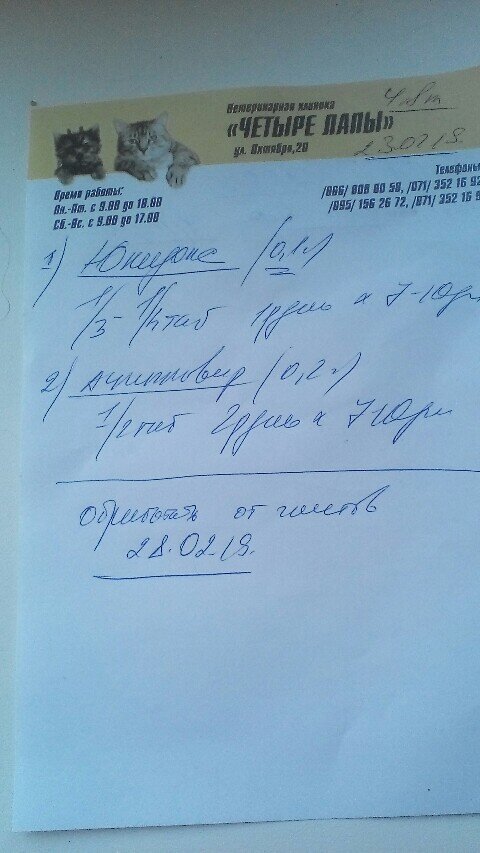 Ветеринарная клиника
«ЧЕТЫРЕ ЛАПЫ»
ул. Октября, 20
23.02.19.
Время работы:
Пн.-Пт. с 9.00 до 18.00
Сб.-Вс. с 9.00 до 17.00
Телефоны:
/066/ 808 80 58, /071/ 352 16 9
/095/ 156 26 72, /071/ 352 16 9
1) Юнидокс (0,1г)
1/3 - 1/4 таб 1р/день х 7-10дн
2) (0,2г)
1/2 таб 2р/день х 7-10дн
Обработать от глистов
28.02.19.